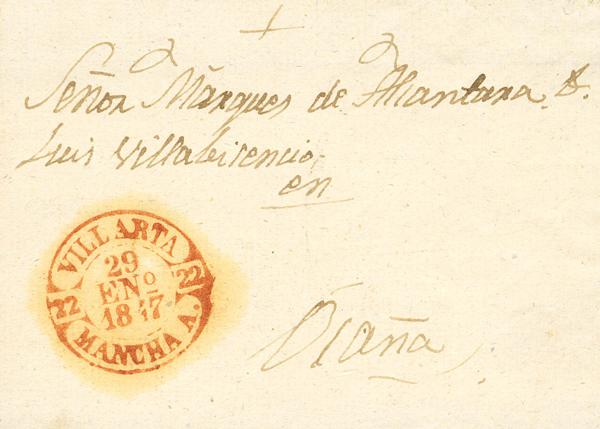 Señor Marques de Alcantara &.
Luis Villabisencio
en
VILLARTA
22
29
ENº
1847
22
MANCHA A.
Ocaña